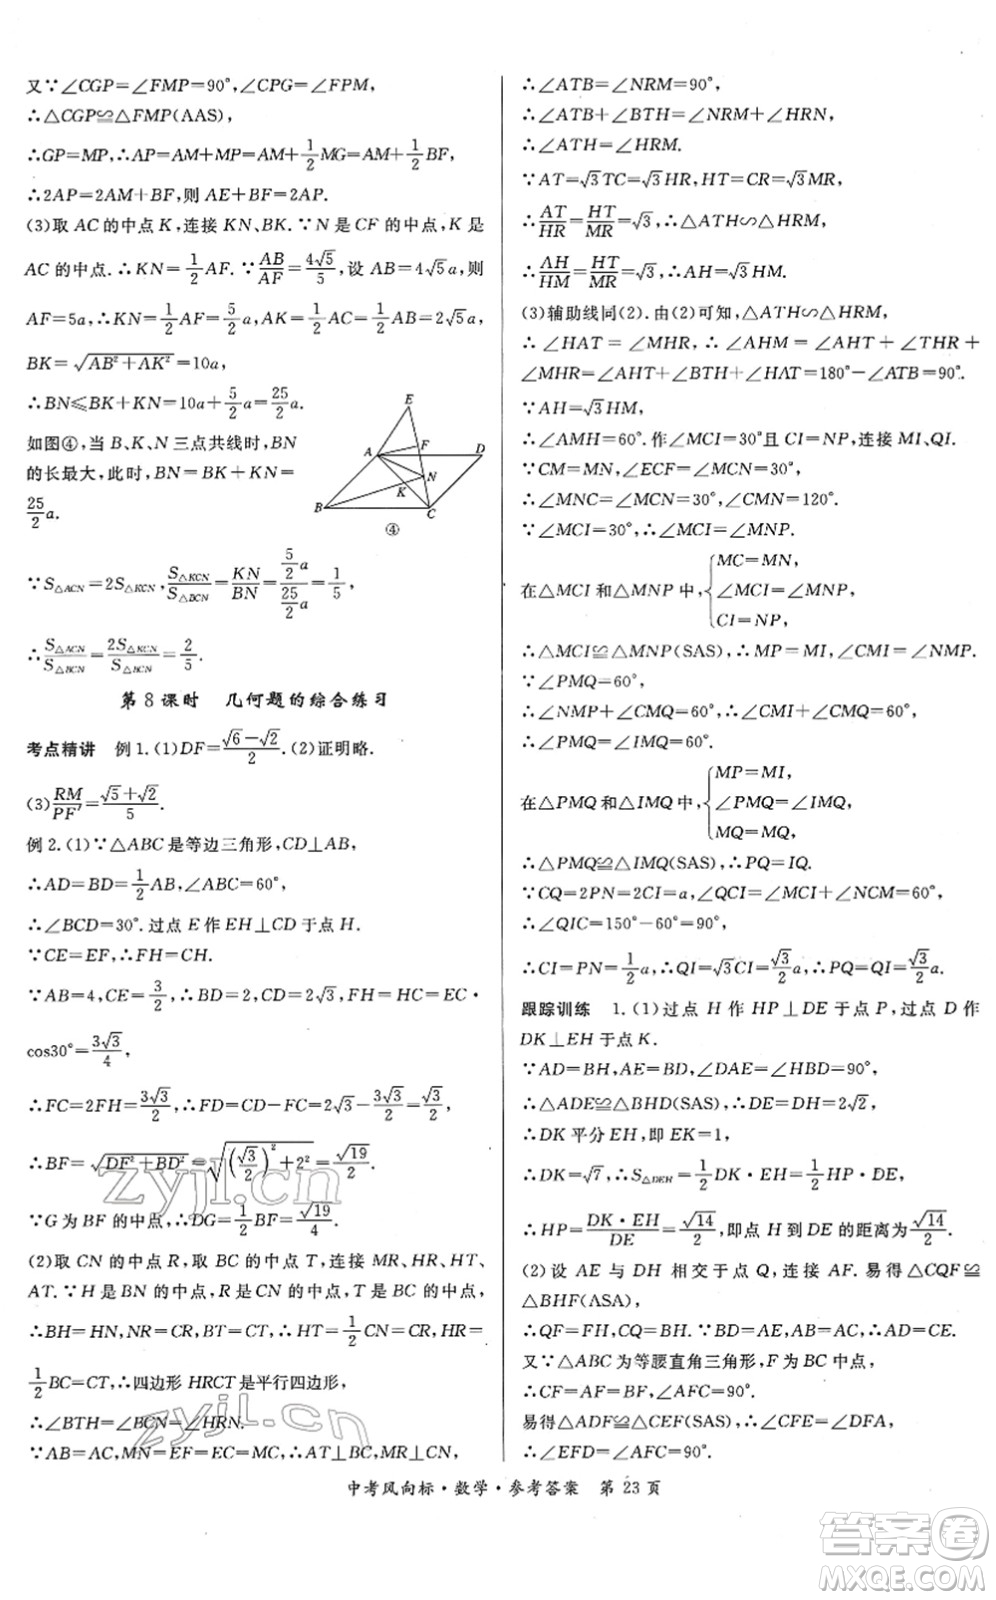 又∵∠CGP=∠FMP=90°,∠CPG=∠FPM,
∴△CGP≌△FMP(AAS),
∴GP=MP,∴AP=AM+MP=AM+1/2MG=AM+1/2BF,
∴2AP=2AM+BF,则 AE+BF=2AP.
(3)取 AC 的中点 K,连接 KN、BK.∵N 是 CF 的中点,K 是
AC 的中点.∴KN=1/2AF.∵AB/AF=4√5/5,设 AB=4√5a,则
AF=5a,∴KN=1/2AF=5/2a,AK=1/2AC=1/2AB=2√5a,
BK=√(AB²+AK²)=10a,
∴BN≤BK+KN=10a+5/2a=25/2a.
如图④,当 B、K、N 三点共线时,BN
的长最大,此时,BN=BK+KN=
25/2a.
E
F
A
D
N
K
B
C
④
∵S△ACN=2S△KCN,S△KCN/S△BCN=KN/BN=(5/2a)/(25/2a)=1/5,
∴S△ACN/S△BCN=2S△KCN/S△BCN=2/5.
第 8 课时 几何题的综合练习
考点精讲 例 1.(1)DF=(√6-√2)/2.(2)证明略.
(3)RM/PF'=(√5+√2)/5.
例 2.(1)∵△ABC 是等边三角形,CD⊥AB,
∴AD=BD=1/2AB,∠ACB=60°,
∴∠BCD=30°.过点 E 作 EH⊥CD 于点 H.
∵CE=EF,∴FH=CH.
∵AB=4,CE=3/2,∴BD=2,CD=2√3,FH=HC=EC·
cos30°=3√3/4,
∴FC=2FH=3√3/2,∴FD=CD-FC=2√3-3√3/2=√3/2,
∴BF=√(DF²+BD²)=√((√3/2)²+2²)=√19/2.
∵G 为 BF 的中点,∴DG=1/2BF=√19/4.
(2)取 CN 的中点 R,取 BC 的中点 T,连接 MR,HR,HT,
AT.∵H 是 BN 的中点,R 是 CN 的中点,T 是 BC 的中点,
∴BH=HN,NR=CR,BT=CT,∴HT=1/2CN=CR,HR=
1/2BC=CT,∴四边形 HRCT 是平行四边形,
∴∠BTH=∠BCN=∠HRN.
∵AB=AC,MF=EF=EC=MC,∴AT⊥BC,MR⊥CN,
∴∠ATB=∠NRM=90°,
∴∠ATB+∠BTH=∠NRM+∠HRN,
∴∠ATH=∠HRM.
∵AT=√3TC=√3HR,HT=CR=√3MR,
∴AT/HR=HT/MR=√3,∴△ATH∽△HRM,
∴AH/HM=HT/MR=√3,∴AH=√3HM.
(3)辅助线同(2).由(2)可知,△ATH∽△HRM,
∴∠HAT=∠MHR,∴∠AHM=∠AHT+∠THR+
∠MHR=∠AHT+∠BTH+∠HAT=180°-∠ATB=90°.
∵AH=√3HM,
∴∠AMH=60°.作∠MCI=30°且 CI=NP,连接 MI、QI.
∵CM=MN,∠ECF=∠MCN=30°,
∴∠MNC=∠MCN=30°,∠CMN=120°.
∵∠MCI=30°,∴∠MCI=∠MNP.
在△MCI 和△MNP 中,{MC=MN,
∠MCI=∠MNP,
CI=NP,
∴△MCI≌△MNP(SAS),∴MP=MI,∠CMI=∠NMP.
∵∠PMQ=60°,
∴∠NMP+∠CMQ=60°,∴∠CMI+∠CMQ=60°,
∴∠PMQ=∠IMQ=60°.
在△PMQ 和△IMQ 中,{MP=MI,
∠PMQ=∠IMQ,
MQ=MQ,
∴△PMQ≌△IMQ(SAS),∴PQ=IQ.
∵CQ=2PN=2CI=a,∠QCI=∠MCI+∠NCM=60°,
∴∠QIC=150°-60°=90°,
∴CI=PN=1/2a,∴QI=√3CI=√3/2a,∴PQ=QI=√3/2a.
跟踪训练 1.(1)过点 H 作 HP⊥DE 于点 P,过点 D 作
DK⊥EH 于点 K.
∵AD=BH,AE=BD,∠DAE=∠HBD=90°,
∴△ADE≌△BHD(SAS),∴DE=DH=2√2,
∴DK 平分 EH,即 EK=1,
∴DK=√7,∴S△DEH=1/2DK·EH=1/2HP·DE,
∴HP=DK·EH/DE=√14/2,即点 H 到 DE 的距离为√14/2.
(2)设 AE 与 DH 相交于点 Q,连接 AF.易得△CQF≌
△BHF(ASA),
∴QF=FH,CQ=BH.∵BH=AD,∴AD=CE.
又∵△ABC 为等腰直角三角形,F 为 BC 中点,
∴CF=AF,∠AFC=90°.
易得△ADF≌△CEF(SAS),∴∠CFE=∠DFA,
∴∠EFD=∠AFC=90°.
中考风向标·数学·参考答案 第 23 页
zyjl.cn
zyjl.cn
答案卷
MXQE.COM